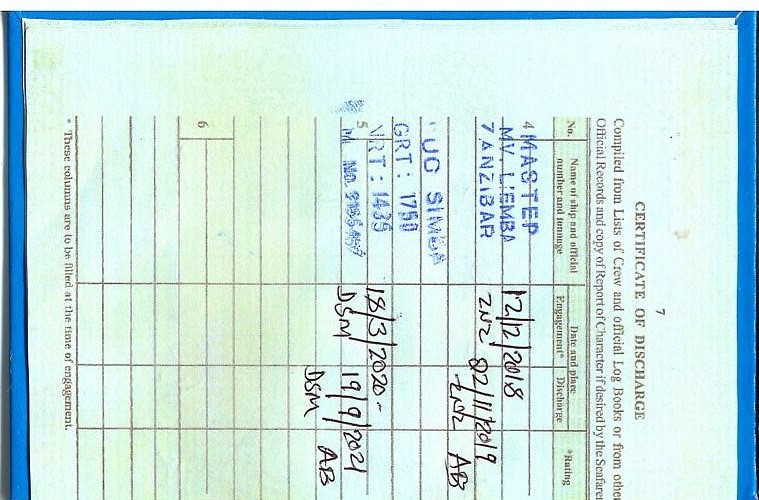 7
CERTIFICATE OF DISCHARGE
Compiled from Lists of Crew and official Log Books or from othe
Official Records and copy of Report of Character if desired by the Seafarer
No.
Name of ship and official number and tonnage
Date and place
Engagement*
Discharge
*Rating
4
MASTER
MV. LIEMBA
ZANZIBAR
12/12/2018
ZNZ
02/11/2019
ZNZ
AB
TUG SIMBA
GRT: 1750
NRT: 1435
5
NO.
18/3/2020-
DSM
19/9/2021
DSM
AB
6
* These columns are to be filled at the time of engagement.